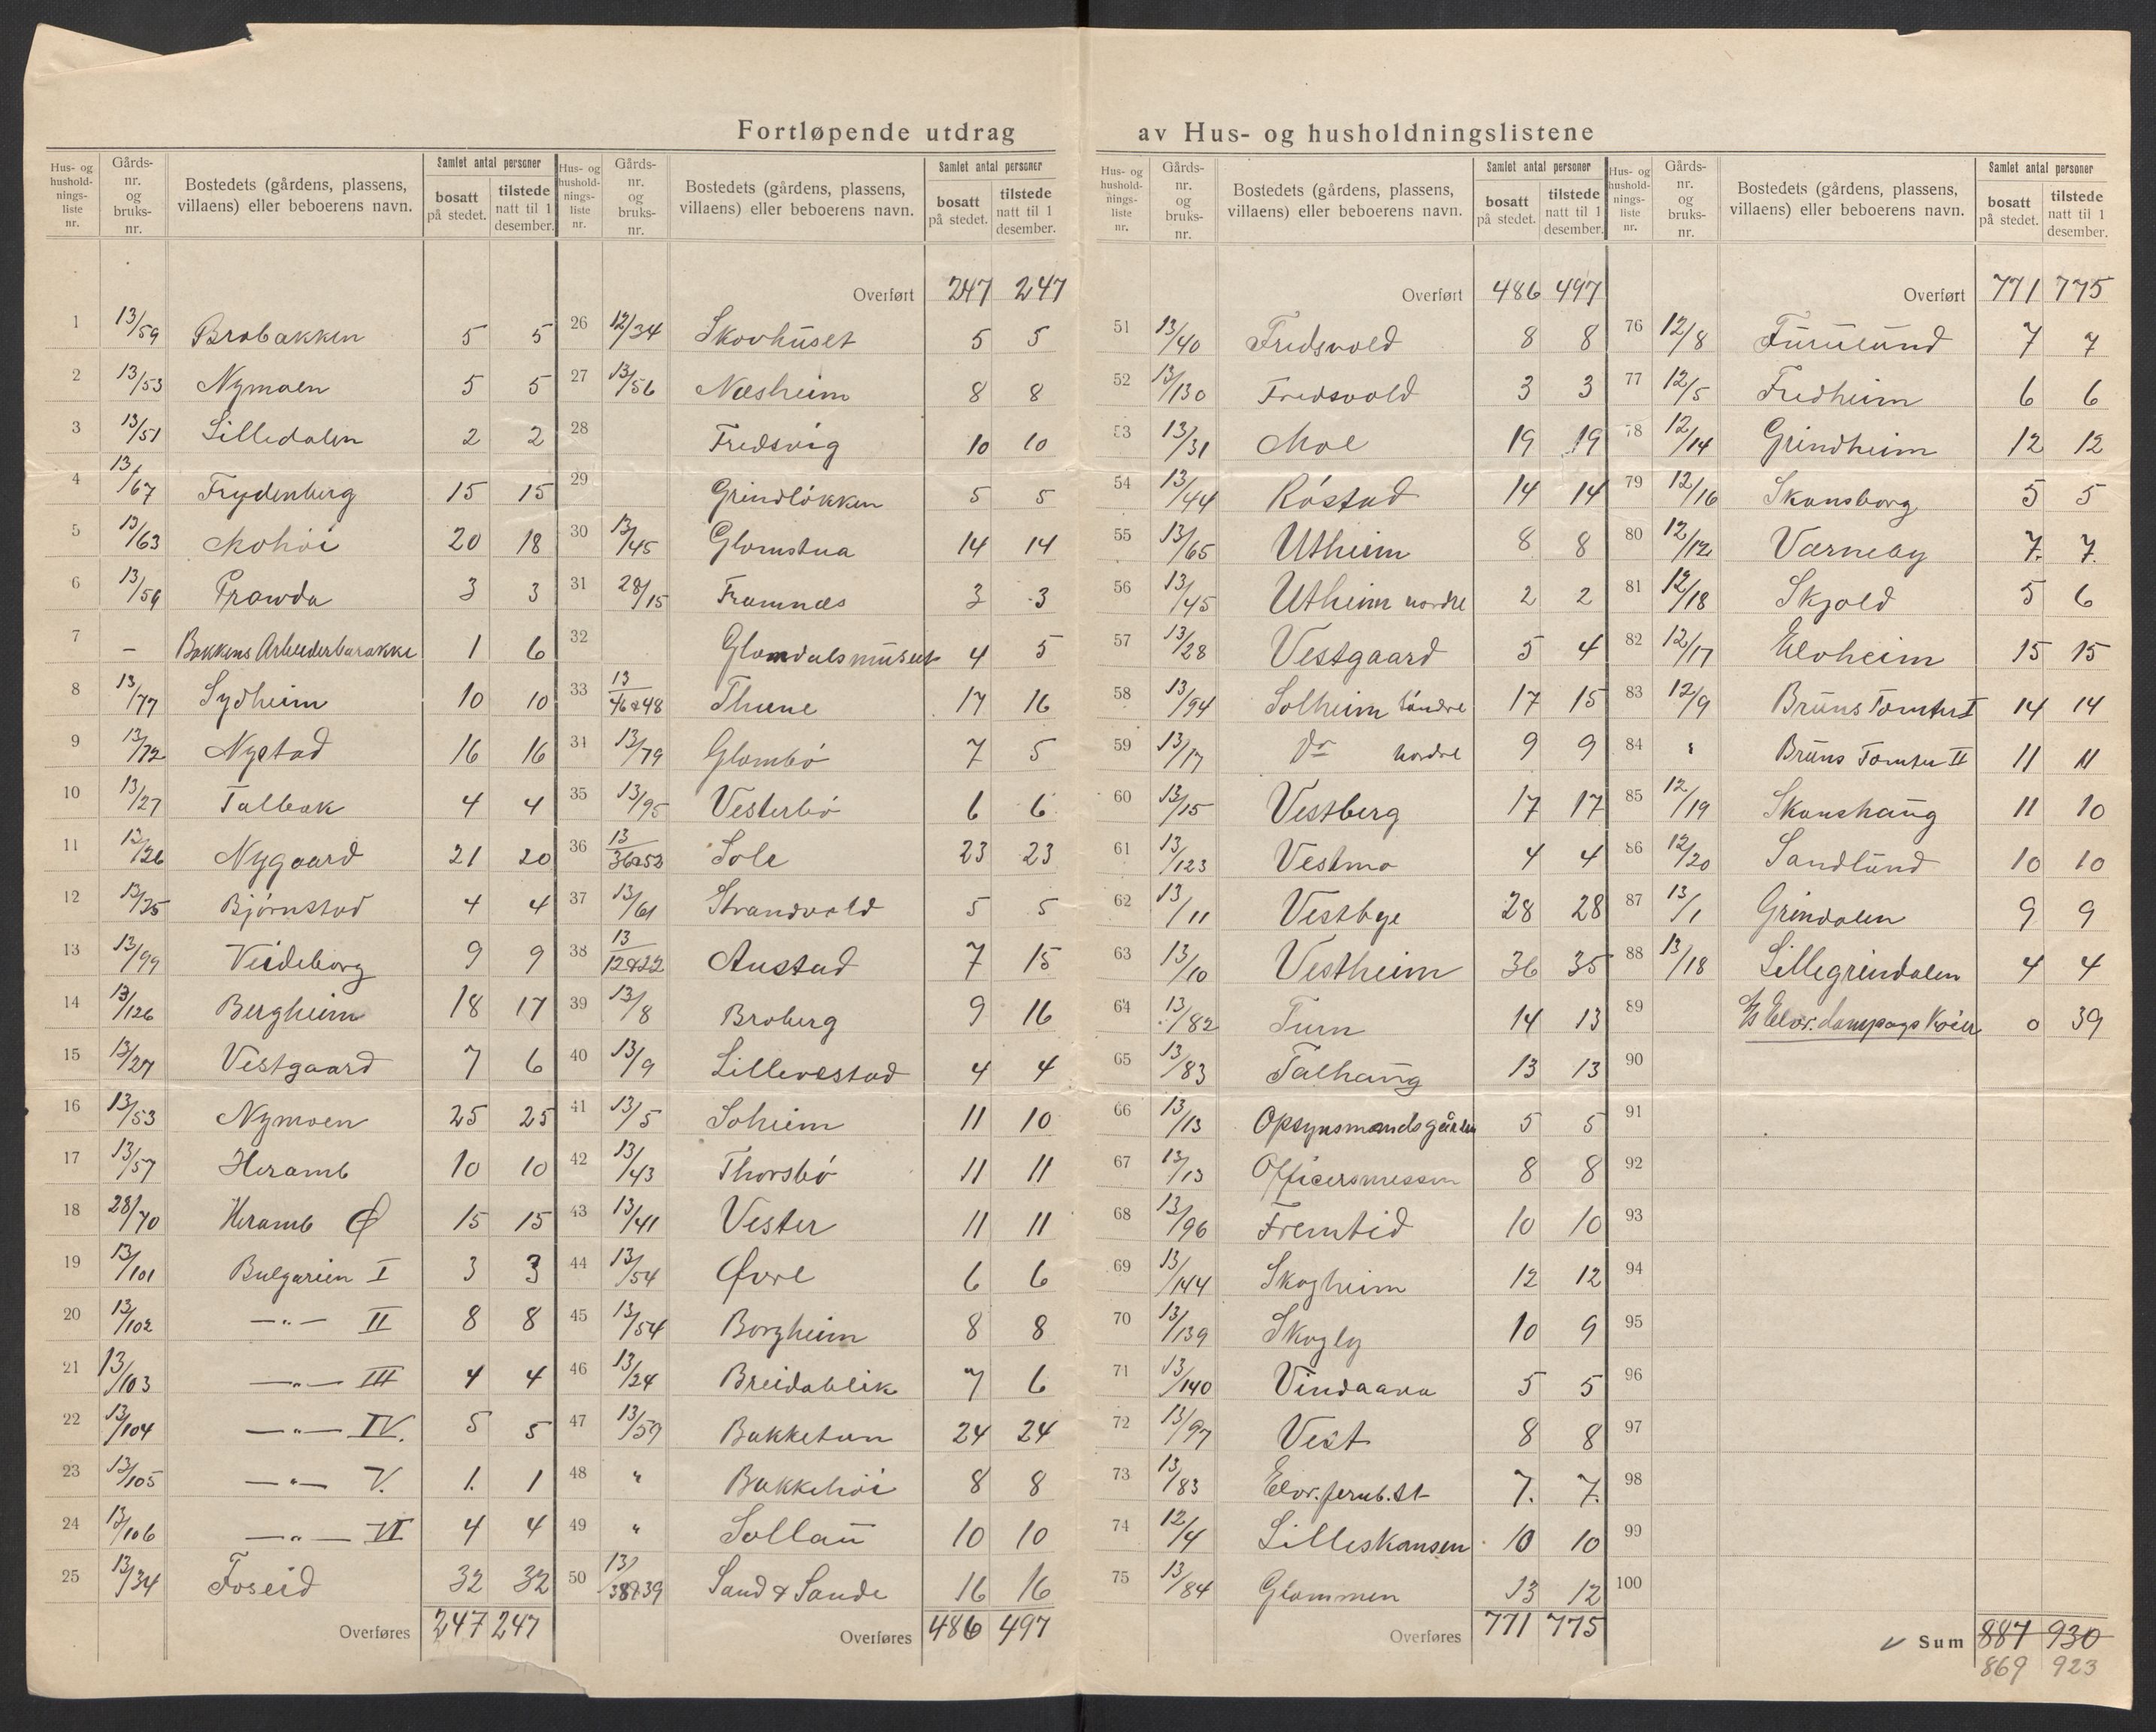 Fortløpende utdrag av Hus- og husholdningslistene
Hus- og husholdnings-liste nr. | Gårds-nr. og bruks-nr. | Bostedets (gårdens, plassens, villaens) eller beboerens navn. | Samlet antal personer | bosatt på stedet. | tilstede natt til 1 desember.
1 13/59 Brobakken 5 5
2 13/53 Nymoen 5 5
3 13/51 Lilledalen 2 2
4 13/67 Frydenberg 15 15
5 13/63 Mohöi 20 18
6 13/59 Prawda 3 3
7 – Bakkens Arbeiderbarakke 1 6
8 13/77 Sydheim 10 10
9 13/72 Nystad 16 16
10 13/27 Talbak 4 4
11 13/26 Nygaard 21 20
12 13/35 Bjørnstad 4 4
13 13/99 Veideborg 9 9
14 13/126 Bergheim 18 17
15 13/27 Vestgaard 7 6
16 13/53 Nymoen 25 25
17 13/57 Heramb 10 10
18 28/70 Heramb Ø 15 15
19 13/101 Bulgarien I 3 3
20 13/102 —"— II 8 8
21 13/103 —"— III 4 4
22 13/104 —"— IV. 5 5
23 13/105 —"— V. 1. 1
24 13/106 —"— VI 4 4
25 13/34 Foseid 32 32
Overføres 247 247
Hus- og husholdnings-liste nr. | Gårds-nr. og bruks-nr. | Bostedets (gårdens, plassens, villaens) eller beboerens navn. | Samlet antal personer | bosatt på stedet. | tilstede natt til 1 desember.
Overført 247 247
26 12/34 Skovhuset 5 5
27 13/56 Næsheim 8 8
28 Fredsvig 10 10
29 Grindløkken 5 5
30 13/45 Glomstua 14 14
31 28/15 Framnæs 3 3
32 Glomdalsmuseet 4 5
33 13/46&48 Thune 17 16
34 13/79 Glombö 7 5
35 13/95 Vesterbö 6 6
36 13/36&52 Sole 23 23
37 13/61 Strandvold 5 5
38 13/12&22 Austad 7 15
39 13/8 Broberg 9 16
40 13/9 Lillevestad 4 4
41 13/5 Soheim 11 10
42 13/43 Thorsbö 11 11
43 13/41 Vester 11 11
44 13/54 Øvre 6 6
45 13/54 Borgheim 8 8
46 13/24 Breidablik 7 6
47 13/59 Bakketun 24 24
48 " Bakkehöi 8 8
49 " Sollau 10 10
50 13/38&39 Sand & Sande 16 16
Overføres 486 497
Hus- og husholdnings-liste nr. | Gårds-nr. og bruks-nr. | Bostedets (gårdens, plassens, villaens) eller beboerens navn. | Samlet antal personer | bosatt på stedet. | tilstede natt til 1 desember.
Overført 486 497
51 13/40 Fredsvold 8 8
52 13/130 Fredsvold 3 3
53 13/31 Moe 19 19
54 13/44 Röstad 14 14
55 13/65 Utheim 8 8
56 13/45 Utheim nordre 2 2
57 13/28 Vestgaard 5 4
58 13/94 Solheim söndre 17 15
59 13/17 Do nordre 9 9
60 13/15 Vestberg 17 17
61 13/123 Vestmo 4 4
62 13/11 Vestbye 28 28
63 13/10 Vestheim 36 35
64 13/82 Turn 14 13
65 13/83 Talhaug 13 13
66 13/13 Opsynsmandsgården 5 5
67 13/13 Officersmessen 8 8
68 13/96 Fremtid 10 10
69 13/144 Skogheim 12 12
70 13/139 Skogly 10 9
71 13/140 Vindaara 5 5
72 13/97 Vest 8 8
73 13/83 Elv. jernb. st 7. 7.
74 12/4 Lilleskansen 10 10
75 13/84 Glommen 13 12
Overføres 771 775
Hus- og husholdnings-liste nr. | Gårds-nr. og bruks-nr. | Bostedets (gårdens, plassens, villaens) eller beboerens navn. | Samlet antal personer | bosatt på stedet. | tilstede natt til 1 desember.
Overført 771 775
76 12/8 Furulund 7 7
77 12/5 Fredheim 6 6
78 12/14 Grindheim 12 12
79 12/16 Skansborg 5 5
80 12/12 Varneby 7. 7.
81 12/18 Skjold 5 6
82 12/17 Elvheim 15 15
83 12/9 Bruns Tomter I 14 14
84 " Bruns Tomter II 11 11
85 12/19 Skanshaug 11 10
86 12/20 Sandlund 10 10
87 13/1 Grindalen 9 9
88 13/18 Lillegrindalen 4 4
89 A/S Elvr. dampsags Koier 0 39
90
91
92
93
94
95
96
97
98
99
100
✓ Sum 887 930
869 923